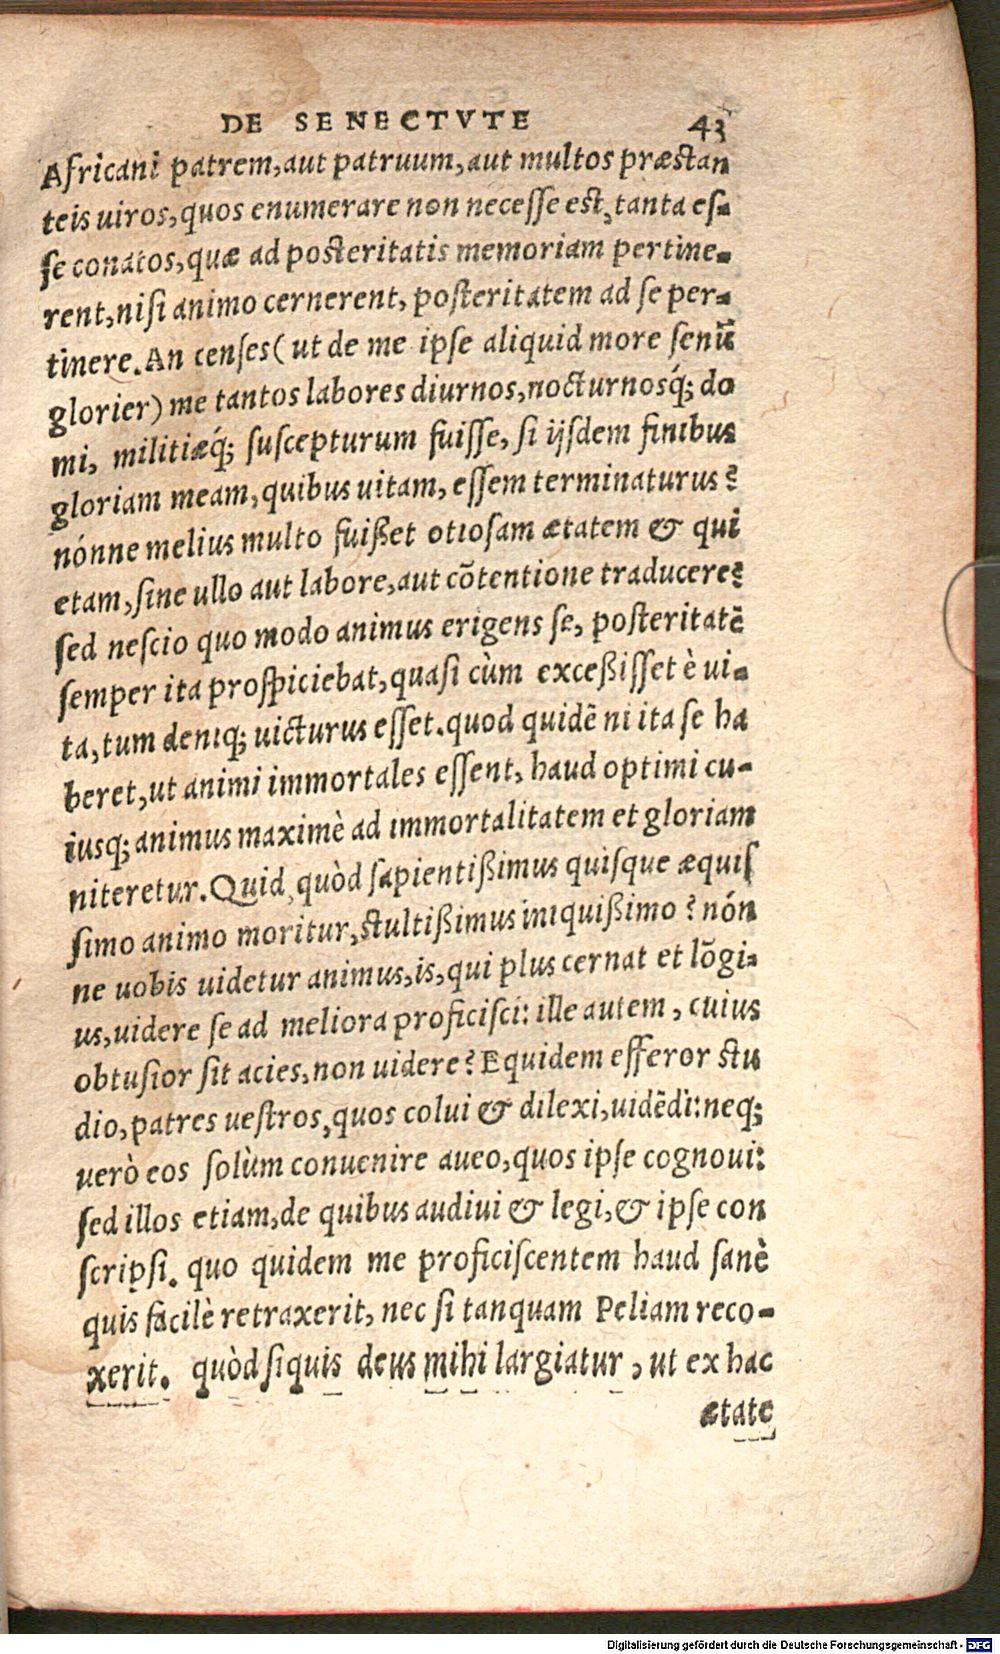 DE SENECTVTE 43
Africani patrem, aut patruum, aut multos præstan
teis uiros, quos enumerare non necesse est, tanta es-
se conatos, quæ ad posteritatis memoriam pertine-
rent, nisi animo cernerent, posteritatem ad se per-
tinere. An censes (ut de me ipse aliquid more senũ
glorier) me tantos labores diurnos, nocturnosq́; do
mi, militiæq́; suscepturum fuisse, si ijsdem finibus
gloriam meam, quibus uitam, essem terminaturus?
nónne melius multo fuißet otiosam ætatem & qui
etam, sine ullo aut labore, aut cõtentione traducere?
sed nescio quo modo animus erigens se, posteritatẽ
semper ita prospiciebat, quasi cùm exceßisset è ui-
ta, tum deniq; uicturus esset. quod quidẽ ni ita se ha
beret, ut animi immortales essent, haud optimi cu-
iusq; animus maximè ad immortalitatem et gloriam
niteretur. Quid, quòd sapientißimus quisque æquis
simo animo moritur, stultißimus iniquißimo? nón
ne uobis uidetur animus, is, qui plus cernat et lõgi-
us, uidere se ad meliora proficisci: ille autem, cuius
obtusior sit acies, non uidere? Equidem efferor stu
dio, patres uestros, quos colui & dilexi, uidẽdi: neq;
uerò eos solùm conuenire aueo, quos ipse cognoui:
sed illos etiam, de quibus audiui & legi, & ipse con
scripsi. quo quidem me proficiscentem haud sanè
quis facilè retraxerit, nec si tanquam Peliam reco-
xerit. quòd siquis deus mihi largiatur, ut ex hac
ætate
Digitalisierung gefördert durch die Deutsche Forschungsgemeinschaft - DFG